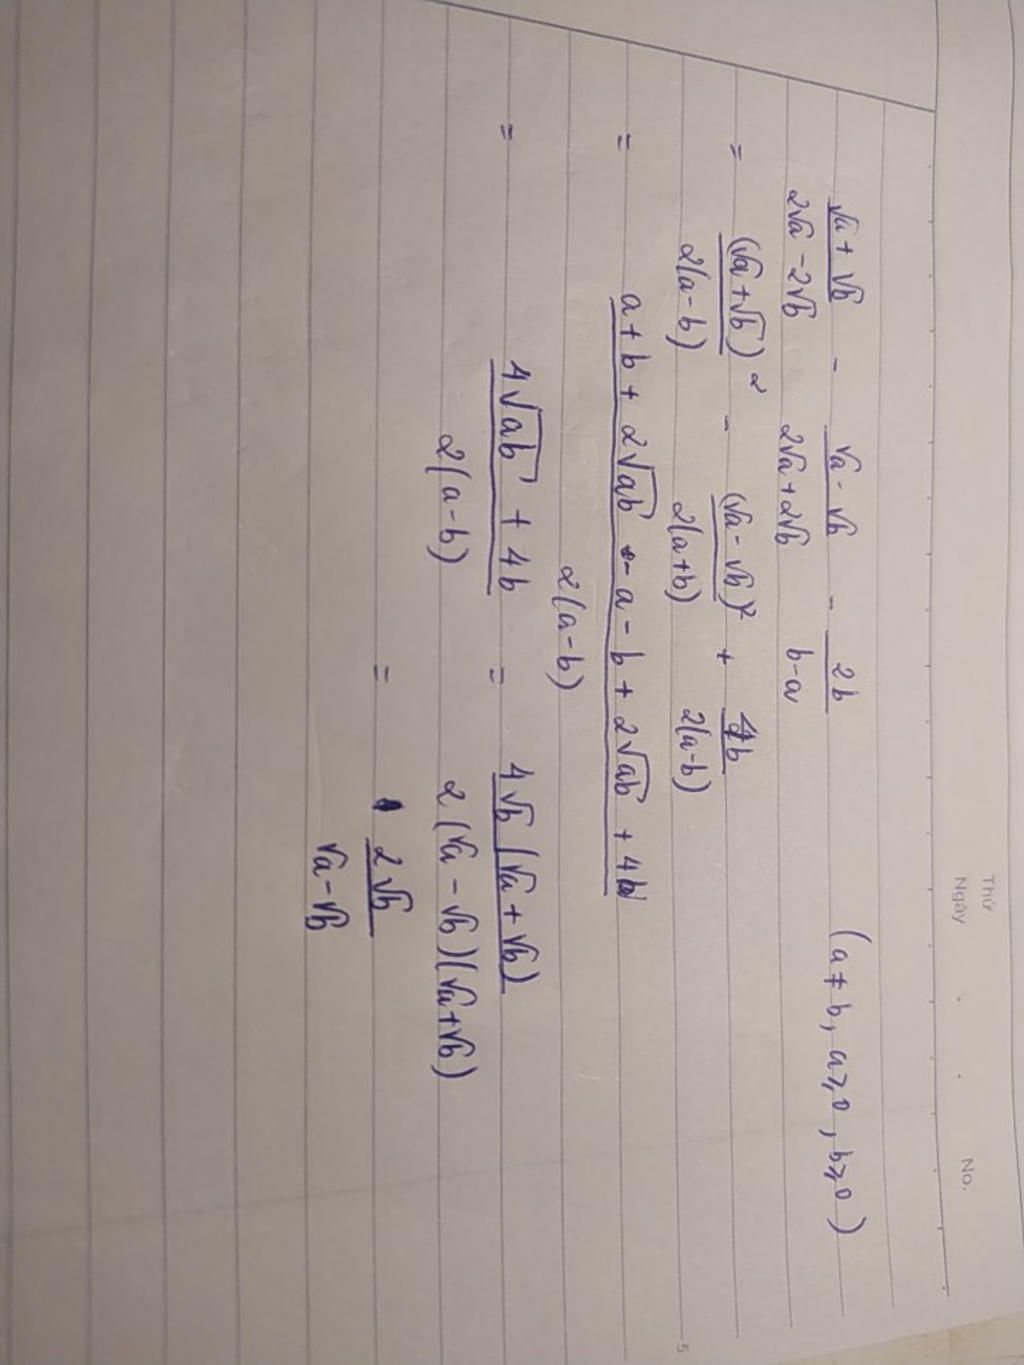 Thứ
Ngày . . No.
(√a + √b)/(2√a - 2√b) - (√a - √b)/(2√a + 2√b) - 2b/(b-a) (a ≠ b, a ⩾ 0, b ⩾ 0)
= (√a + √b)²/2(a-b) - (√a - √b)²/2(a+b) + 4b/2(a-b)
= (a + b + 2√ab - a - b + 2√ab + 4b)/2(a-b)
= (4√ab + 4b)/2(a-b) = 4√b (√a + √b)/2(√a - √b)(√a+√b)
= 2√b/(√a - √b)
5